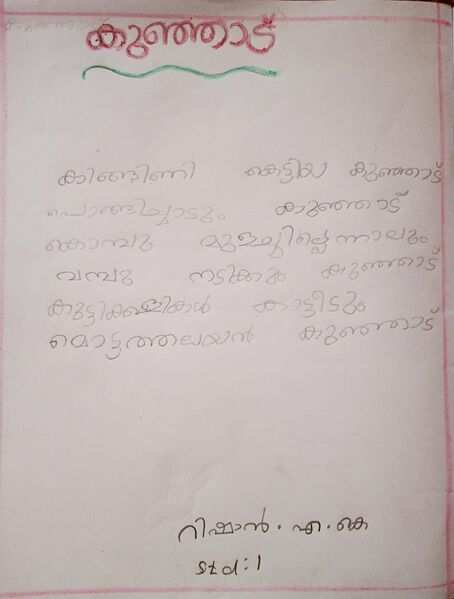 കുഞ്ഞാട്
കിങ്ങിണി കെട്ടിയ കുഞ്ഞാട്
പൊങ്ങിച്ചാടും കുഞ്ഞാട്
കൊമ്പു മുളച്ചില്ലെന്നാലും
വമ്പു നടിക്കും കുഞ്ഞാട്
കുട്ടിക്കളികൾ കാട്ടീടും
മൊട്ടത്തലയൻ കുഞ്ഞാട്
റിഷാൻ. എ. കെ
std:1